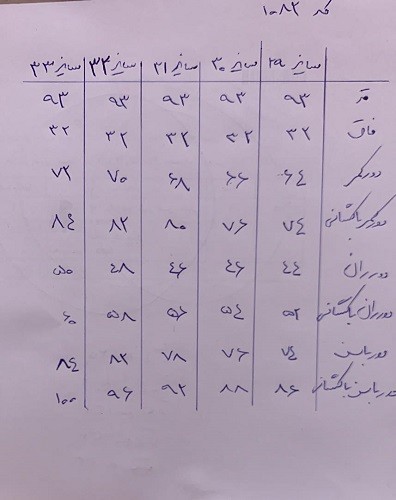 کد ۱۰۸۲
سایز ۲۹ سایز ۳۰ سایز ۳۱ سایز ۳۲ سایز ۳۳
قد ۹۳ ۹۳ ۹۳ ۹۳ ۹۳
فاق ۳۲ ۳۲ ۳۲ ۳۲ ۳۲
دورکمر ۶۴ ۶۶ ۶۸ ۷۰ ۷۲
دورکمر باکشسانی ۷۴ ۷۶ ۸۰ ۸۲ ۸۴
دور ران ۴۴ ۴۶ ۴۶ ۴۸ ۵۰
دور ران باکشسانی ۵۲ ۵۴ ۵۶ ۵۸ ۶۰
دور باسن ۷۴ ۷۶ ۷۸ ۸۲ ۸۴
دور باسن باکشسانی ۸۶ ۸۸ ۹۲ ۹۶ ۱۰۰